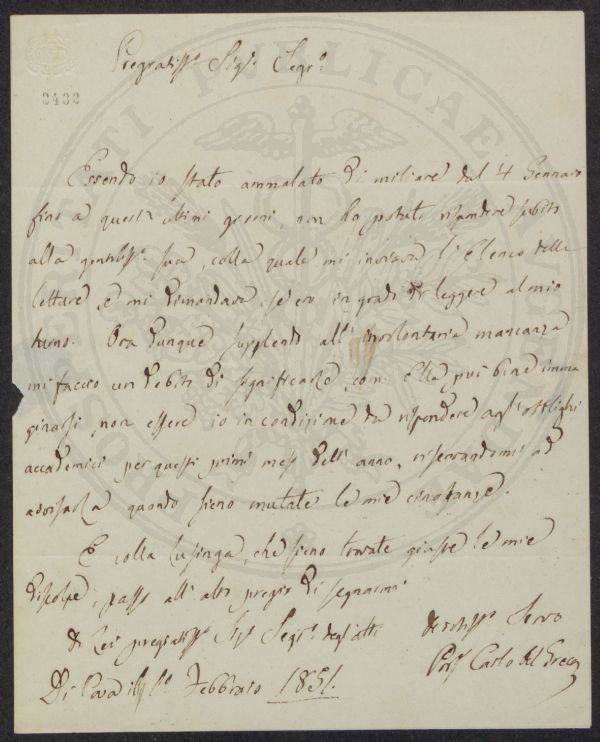 Pregiatiss.º Sig.r Segr.º
2432
Essendo io stato ammalato di miliare dal 4 Gennaro
fino a questi ultimi giorni, non ho potuto rispondere subito
alla gentiliss.ª sua, colla quale mi inviava l'Elenco delle
letture, e mi dimandava, se ero in grado di leggere al mio
turno. Ora dunque supplendo all'involontaria mancanza
mi faccio un debito di significarle, com'Ella può bene imma
ginarsi, non essere io in condizione da rispondere agl'obblighi
accademici per questi primi mesi dell'anno, riservandomi ad
avvisarla quando sieno mutate le mie circostanze.
E colla lusinga, che sieno trovate giuste le mie
discolpe, passo all'alto pregio di segnarmi
di Lei pregiatiss.º Sig.r Segr.º degli atti
devotiss.º Servo
Prof. Carlo del
Di Casa il 1º Febbraio 1851.